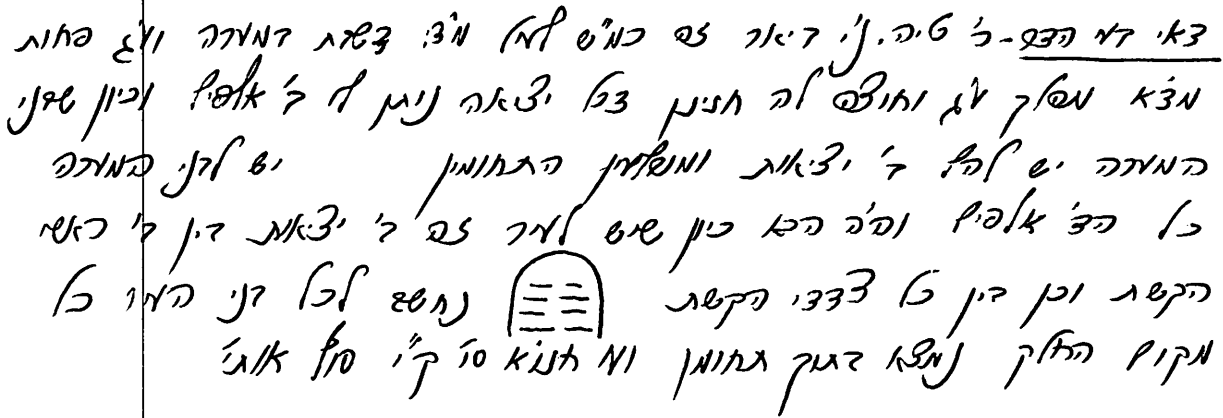 דאי בעי הדר - ביאור זה כמ"ש לעיל דשבת במערה וע"ג פחות
מד"א מהלך ע"ג וחוצה לה חזינן דכל יציאה ניתן לו ב' אלפים וכיון שבני
המערה יש להם ב' יציאות ומובלעין התחומין יש לבני המערה
כל הד' אלפים וה"ה הכא כיון שיש לעיר זה ב' יציאות בין ב' ראשי
הקשת וכן בין כל צדדי הקשת נחשב לכל בני העיר כל
מקום החלק נמצא בתוך תחומן ועי' חזו"א סי' ק"י סוף